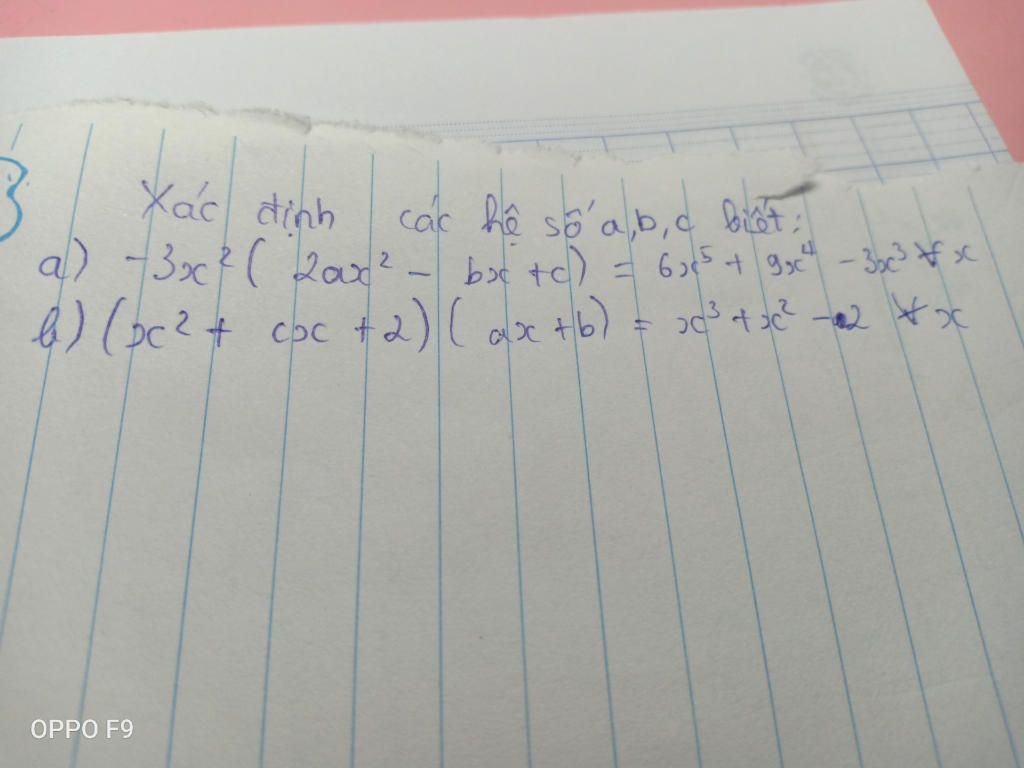 3
Xác định các hệ số a, b, c biết:
a) -3x² ( 2ax² - bx + c) = 6x⁵ + 9x⁴ - 3x³ ∀ x
b) (x² + cx + 2) ( ax + b) = x³ + x² - 2 ∀ x
OPPO F9